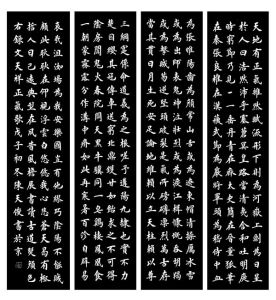 天地有正氣雜然賦流形下則為河嶽上則為日星
於人曰浩然沛乎塞蒼冥皇路當清夷含和吐明庭
時窮節乃見一一垂丹青在齊太史簡在晉董狐筆
在秦張良椎在漢蘇武節為嚴將軍頭為嵇侍中血
為張睢陽齒為顏常山舌或為遼東帽清操厲冰雪
或為出師表鬼神泣壯烈或為渡江楫慷慨吞胡羯
或為擊賊笏逆豎頭破裂是氣所磅礴凜烈萬古存
當其貫日月生死安足論地維賴以立天柱賴以尊
三綱實係命道義為之根嗟予遘陽九隸也實不力
楚囚纓其冠傳車送窮北鼎鑊甘如飴求之不可得
陰房闃鬼火春院閟天黑牛驥同一皂雞棲鳳凰食
一朝蒙霧露分作溝中瘠如此再寒暑百沴自辟易
哀哉沮洳場為我安樂國豈有他繆巧陰陽不能賊
顧此耿耿在仰視浮雲白悠悠我心悲蒼天曷有極
哲人日已遠典型在夙昔風簷展書讀古道照顏色
右錄文天祥正氣歌戊子初冬陳天俊書於京